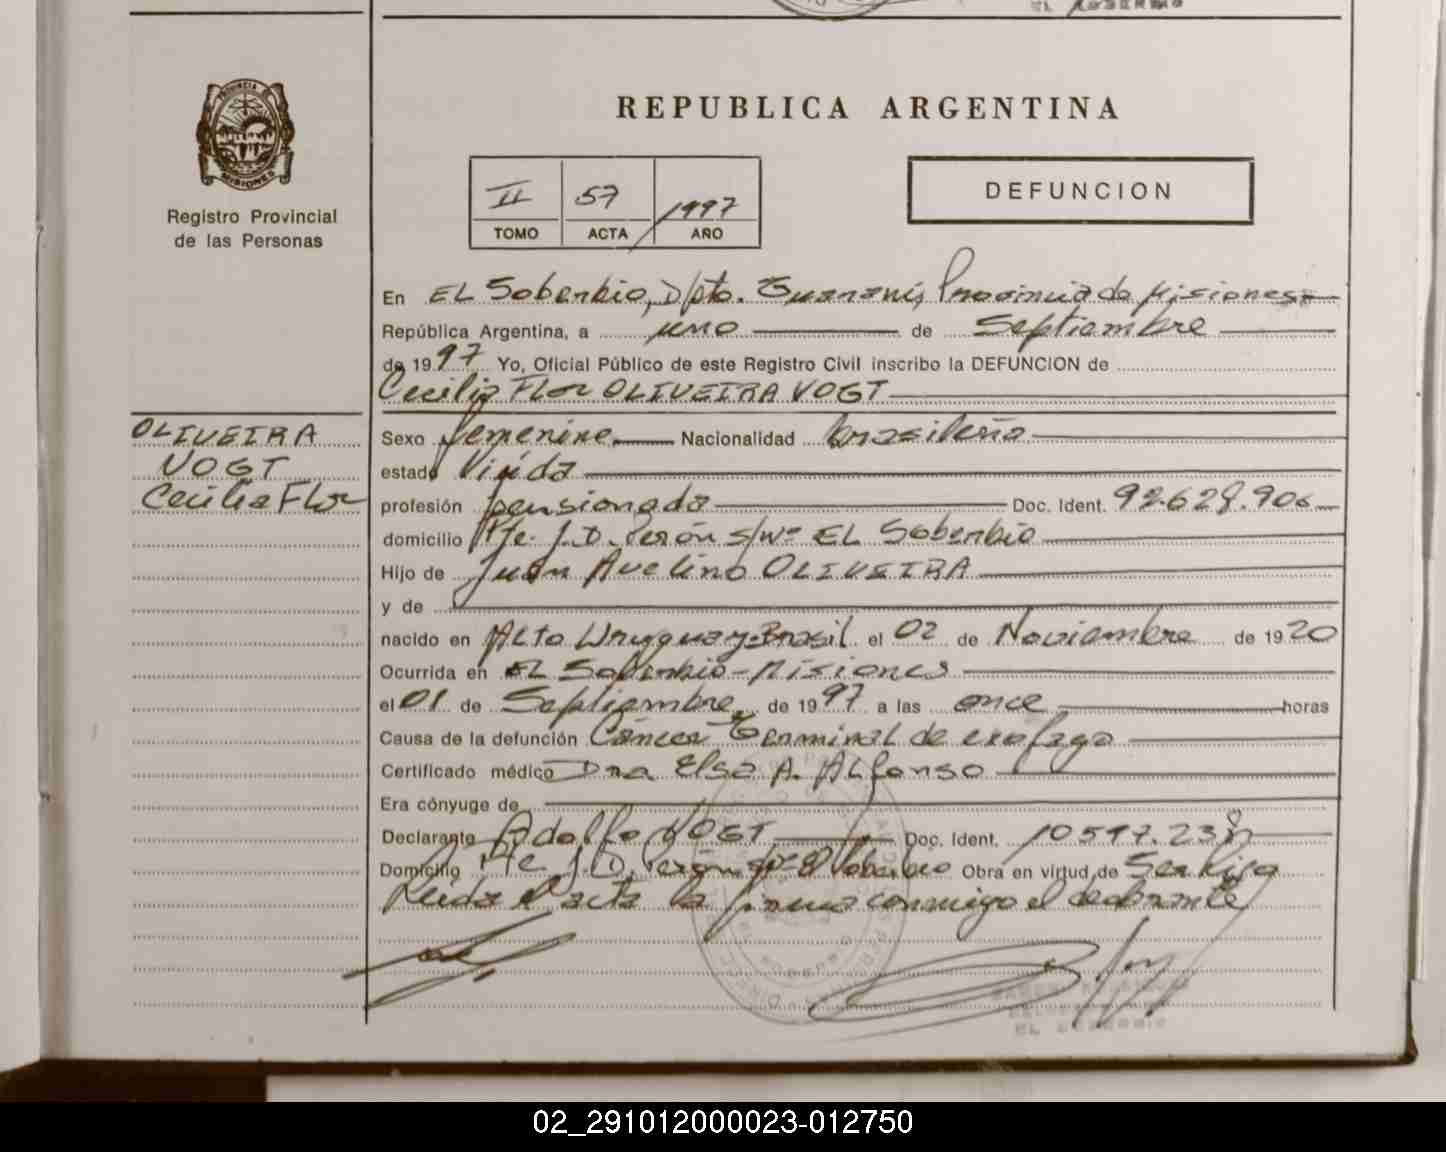 PROVINCIA DE
MISIONES
Registro Provincial
de las Personas
REPUBLICA ARGENTINA
II 57 1997
TOMO ACTA AÑO
DEFUNCION
En EL Soberbio, Dpto. Guaraní, Provincia de Misiones
República Argentina, a uno de Septiembre
de 1997 Yo, Oficial Público de este Registro Civil inscribo la DEFUNCION de
Cecilia Flor OLIVEIRA VOGT
OLIVEIRA
VOGT
Cecilia Flor
Sexo femenino Nacionalidad brasileña
estado Viuda
profesión pensionada Doc. Ident. 92.628.906
domicilio Pte. J.D. Perón s/nº EL Soberbio
Hijo de Juan Avelino OLIVEIRA
y de
nacido en Alto Uruguay-Brasil el 02 de Noviembre de 1920
Ocurrida en EL Soberbio-Misiones
el 01 de Septiembre de 1997 a las once horas
Causa de la defunción Cáncer Terminal de exofago
Certificado médico Dra Elsa A. Alfonso
Era cónyuge de
Declarante Adolfo VOGT Doc. Ident. 10.597.238
Domicilio Pte J.D. Perón s/nº El Soberbio Obra en virtud de Ser hijo
Leida el acta la firma conmigo el declarante
EL SOBERBIO
02_291012000023-012750